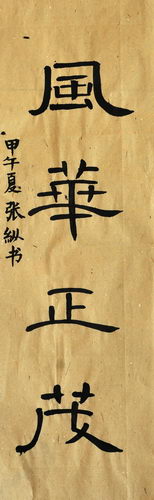 風華正茂
甲午夏张纵书